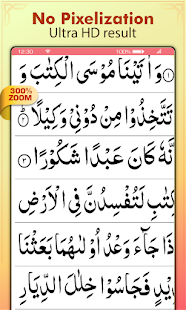 No Pixelization
Ultra HD result
12:30
100%
300%
ZOOM
وَاٰتَيْنَا مُوْسَى الْكِتٰبَ وَ ۝١
تَتَّخِذُوْا مِنْ دُوْنِيْ وَكِيْلًا ۝٢
نَّهٗ كَانَ عَبْدًا شَكُوْرًا ۝٣
كِتٰبِ لَتُفْسِدُنَّ فِي الْاَرْضِ
ذَا جَآءَ وَعْدُ اُوْلٰىهُمَا بَعَثْنَا
دِيْدٍ فَجَاسُوْا خِلٰلَ الدِّيَارِ